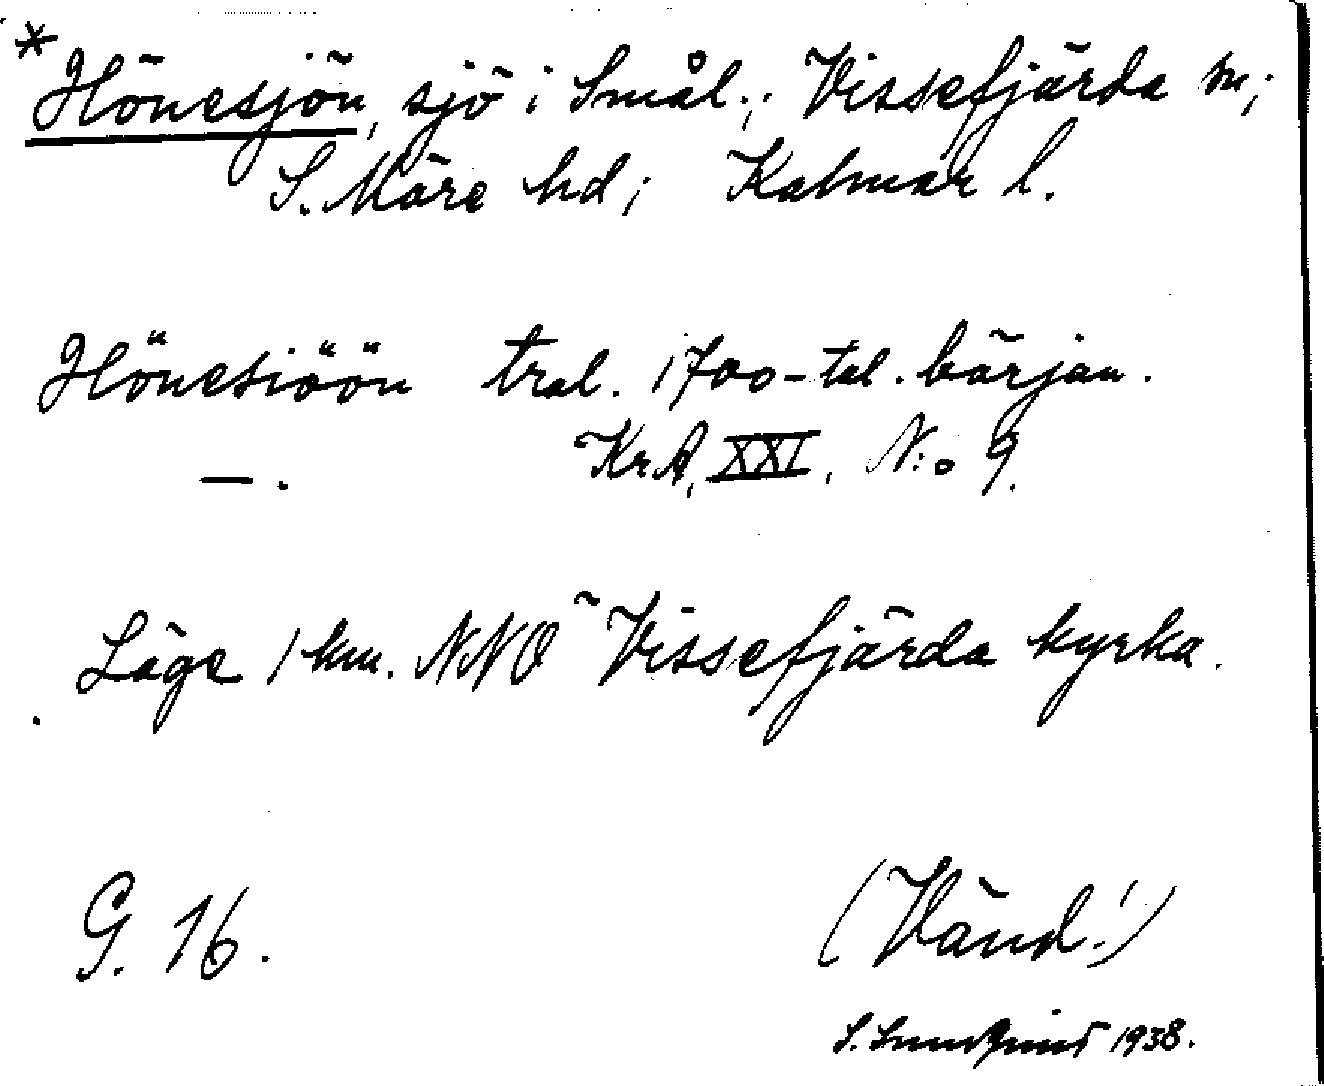 *Hönesjön, sjö i Smål.; Vissefjärda sn;
S. Möre hd; Kalmar l.
Hönesiöön tral. 1700-tal. början.
—. KrA, XXI, N:o 9.
Läge 1 km. NNO Vissefjärda kyrka.
G. 16. (Vänd!)
S. 1938.